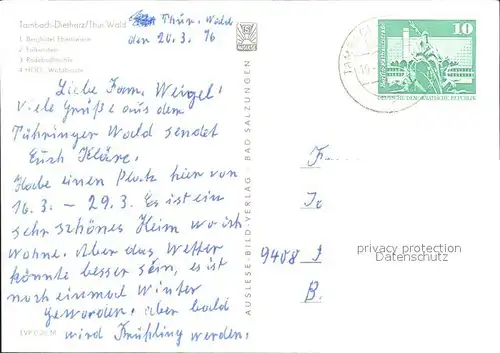 Tambach-Dietharz/Thür. Wald
1 Berghotel Ebertswiese
2 Falkenstein
3 Rodebachmühle
4 HOG.
Thür. Wald
den 20.3. 76
Liebe Fam. Weigel!
Viele Grüße aus dem
Thüringer Wald sendet
Euch Kläre.
Habe einen Platz hier von
16.3. – 29.3. Es ist ein
sehr schönes Heim wo ich
wohne. Aber das Wetter
könnte besser sein, es ist
noch einmal Winter
geworden. aber bald
wird Frühling werden.
AUSLESE-BILD-VERLAG · BAD SALZUNGEN
10
DEUTSCHE DEMOKRATISCHE REPUBLIK
9408
B.
privacy protection
Datenschutz